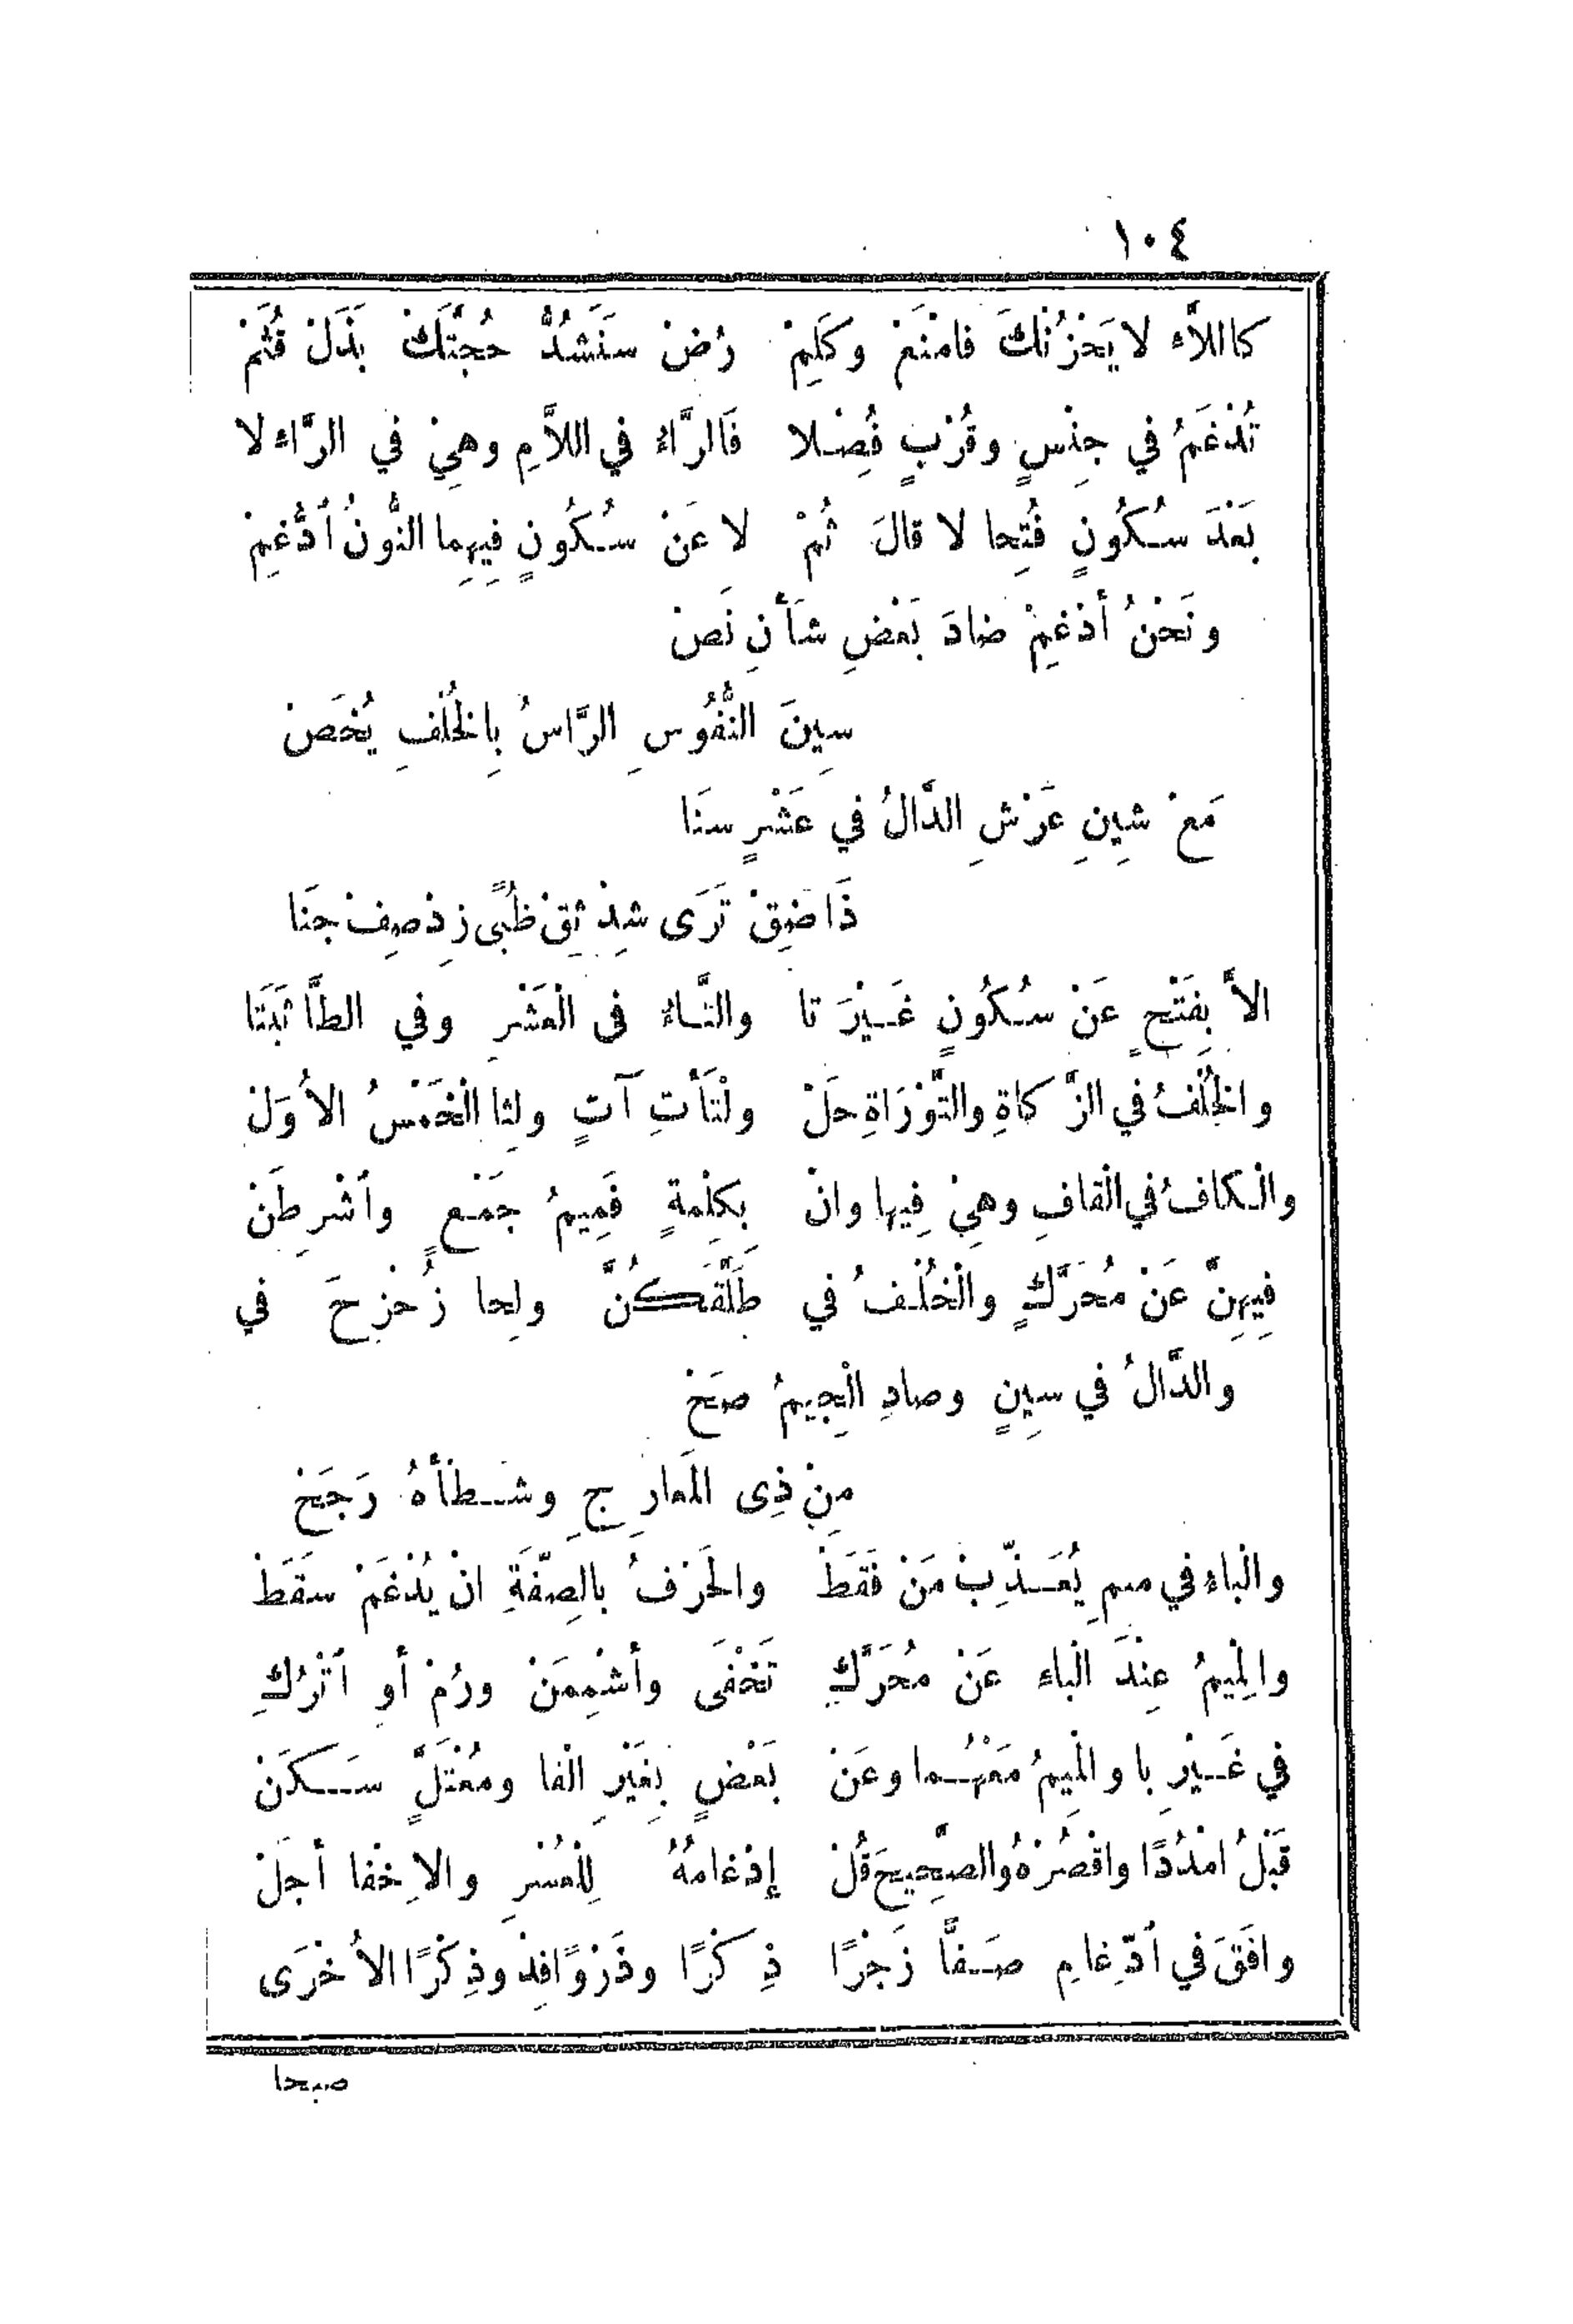 ١٠٤
كاللَّاء لا يَحْزُنْكَ فامْنَعْ وكَلِمْ رُضْ سَنَشُدُّ حُجَّتَكْ بَذْلَ قُثَمْ
تُدْغَمُ في جِنْسٍ وقُرْبٍ فُصِلا فَالرَّاءُ في اللاَّمِ وهِيْ في الرَّاء لا
بَعْدَ سُكُونٍ فُتِحا لا قالَ ثُمْ لا عَنْ سُكُونٍ فِيهِما النُّونُ اُدُّغِمْ
ونَحْنُ أدْغِمْ ضادَ بَعْضِ شَأْنِ نَصْ
سِينَ النُّفُوسِ الرَّاسُ بِالخُلْفِ يُخَصْ
مَعْ شِينِ عَرْشِ الدَّالُ في عَشْرٍ سَنَا
ذَا ضِقْ تَرَى شِدْ ثِقْ ظُبًى زِدْ صِفْ جَنَا
الاَّ بِفَتْحٍ عَنْ سُكُونٍ غَيْرَ تا والتَّاءُ فى الْعَشْرِ وفي الطَّا ثَبَتَا
والخُلْفُ في الزَّكاةِ والتَّوْرَاةِ حَلْ ولْتَأْتِ آتٍ ولِثا الْخَمْسُ الأُوَلْ
والْكافُ في الْقافِ وهِيْ فِيها وانْ بِكِلْمةٍ فَمِيمُ جَمْعٍ واَشْرِطَنْ
فِيهِنَّ عَنْ مُحَرَّكٍ والْخُلْفُ في طَلَّقَكُنَّ ولِحا زُحْزِحَ في
والذَّالُ في سِينٍ وصادِ الْجِيمُ صَحْ
مِنْ ذِى المَعارِجِ وشَطْأَهُ رَجَحْ
والْباء في ميمِ يُعَذِّبْ مَنْ فَقَطْ والحَرْفُ بالصِّفَةِ انْ يُدْغَمْ سَقَطْ
والْمِيمُ عِنْدَ الْباء عَنْ مُحَرَّكِ تَخْفَى وأشْمِمَنْ ورُمْ أوِ اَتْرُكِ
في غَيْرِ با والْمِيمُ مَعْهُما وعَنْ بَعْضٍ بِغَيْرِ الْفا ومُعْتَلٍّ سَكَنْ
قَبْلُ امْدُدًا واقْصُرْهُ والصَّحِيحَ قُلْ إدْغامُهُ لِلْعُسْرِ والاِخْفا أجَلْ
وافَقَ في اَدّغامِ صَفًّا زَجْرًا ذِكْرًا وذَرْوًا فِدْ وذِكْرًا الأُخْرَى
صبحا